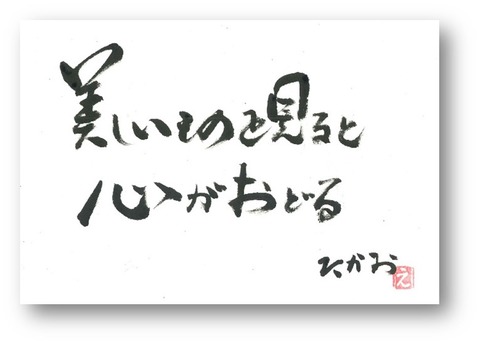 美しいものを見ると
心がおどる
たかお
え